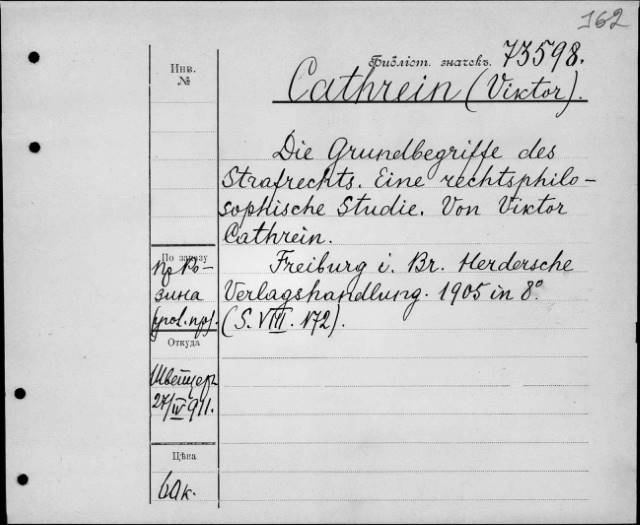 162
Инв.
№
Библіот. значекъ. 73598.
Cathrein (Viktor).
Die Grundbegriffe des
Strafrechts. Eine rechtsphilo-
sophische Studie. Von Viktor
Cathrein.
По заказу
Freiburg i. Br. Herdersche
зина
Verlagshandlung. 1905 in 8°
(S. VIII. 172).
Откуда
Швейцер
27/IV 911.
Цѣна